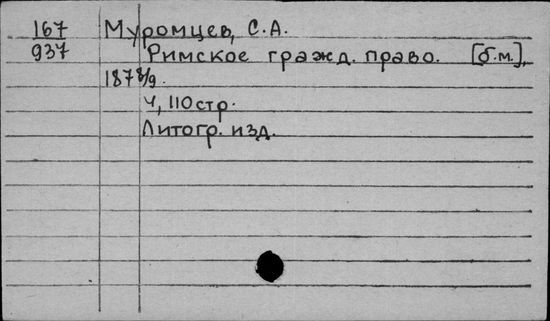 167 Муромцев, С.А.
937 Римское гражд. право. [б.м.],
1878/9.
4, 110 стр.
Литогр. изд.